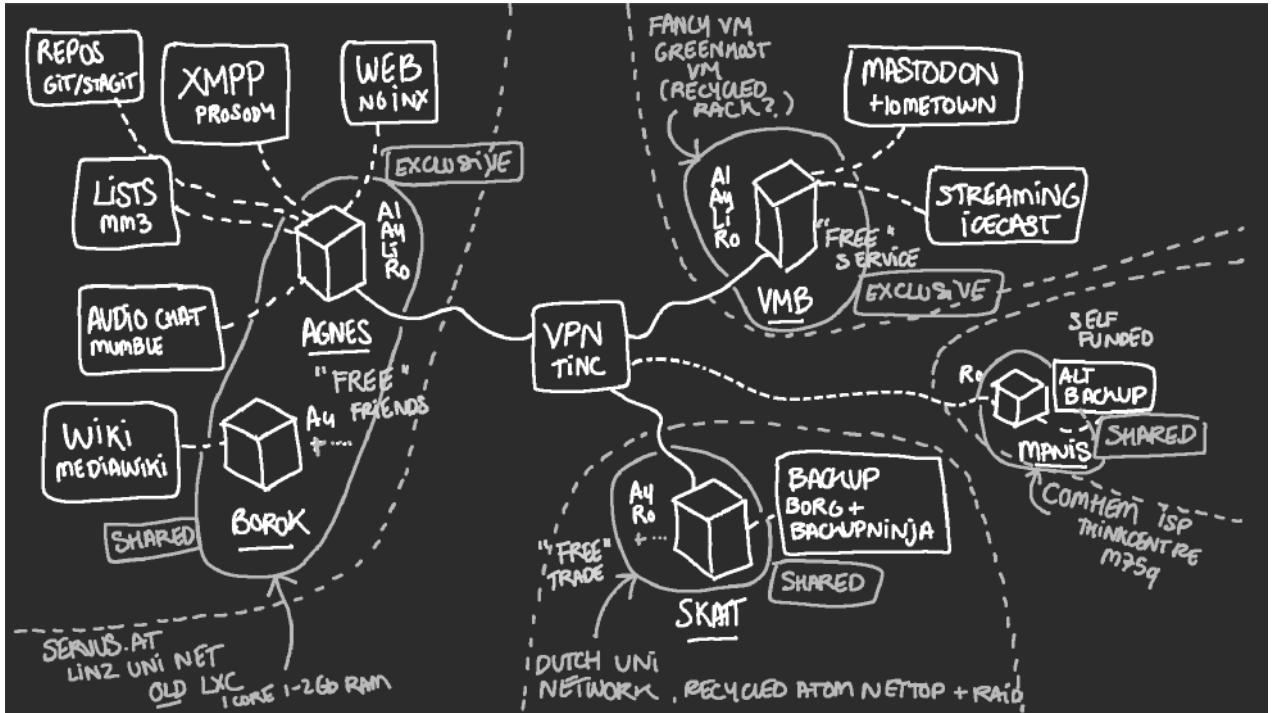 REPOS
GIT/STAGIT
XMPP
PROSODY
WEB
NGINX
EXCLUSIVE
LISTS
MM3
Al
Ay
Li
Ro
AUDIO CHAT
MUMBLE
AGNES
"FREE"
FRIENDS
WIKI
MEDIAWIKI
Ay
+ ....
BOROK
SHARED
SERVUS.AT
LINZ UNI NET
OLD LXC
1 CORE 1-2Gb RAM
VPN
TINC
FANCY VM
GREENHOST
VM
(RECYCLED
RACK?)
MASTODON
+HOMETOWN
Al
Ay
Li
Ro
STREAMING
ICECAST
"FREE"
SERVICE
VMB
EXCLUSIVE
SELF
FUNDED
Ro
ALT
BACKUP
SHARED
MANIS
COMHEM ISP
THINKCENTRE
M75q
Ay
Ro
+ ...
BACKUP
BORG +
BACKUPNINJA
"FREE"
TRADE
SHARED
SKATT
DUTCH UNI
NETWORK, RECYCLED ATOM NETTOP + RAID